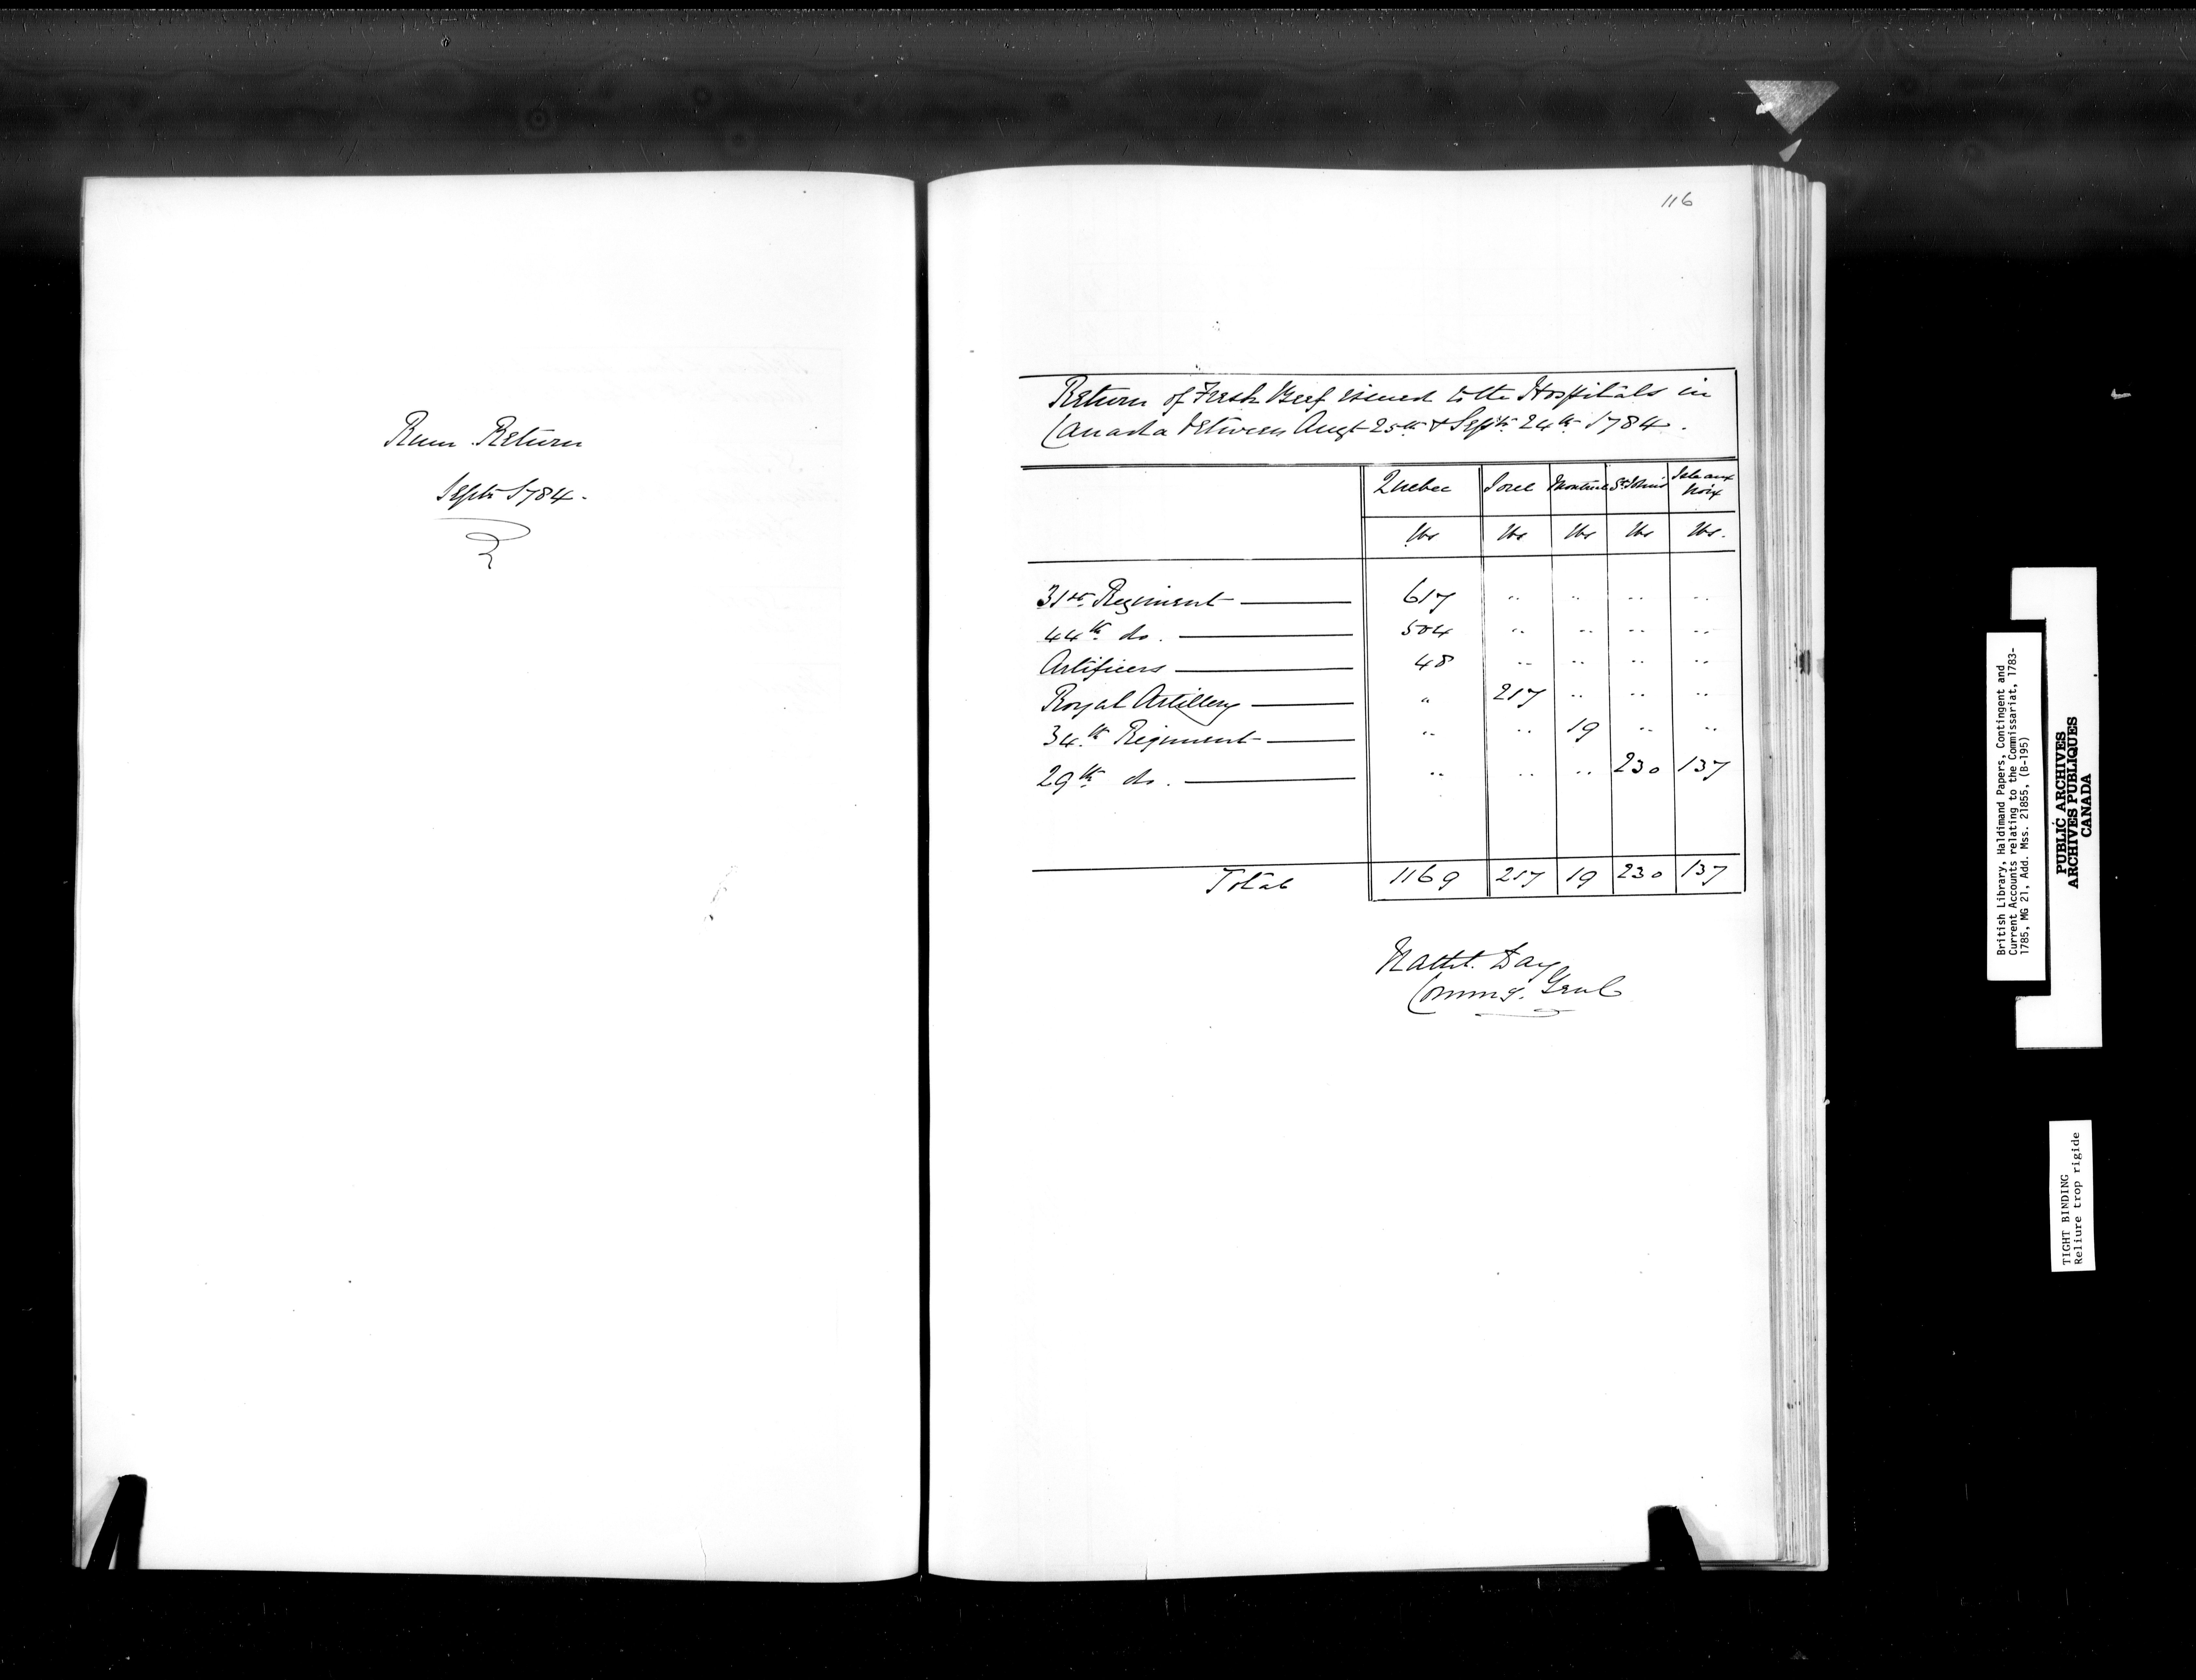 Rum Return
Septr 1784.
116
Return of Fresh Beef issued to the Hospitals in
Canada between Augt 25th & Septr 24th 1784.
Quebec Sorel Montreal St Johns Isle aux Noix
lbs lbs lbs lbs lbs.
31st Regiment 617 " " " "
44th do. 504 " " " "
Artificers 48 " " " "
Royal Artillery " 217 " " "
34th Regiment " " 19 " "
29th do. " " " 230 137
Total 1169 217 19 230 137
Nathl. Day
Commy. Genl
British Library, Haldimand Papers, Contingent and
Current Accounts relating to the Commissariat, 1783-
1785, MG 21, Add. Mss. 21855, (B-195)
PUBLIC ARCHIVES
ARCHIVES PUBLIQUES
CANADA
TIGHT BINDING
Reliure trop rigide